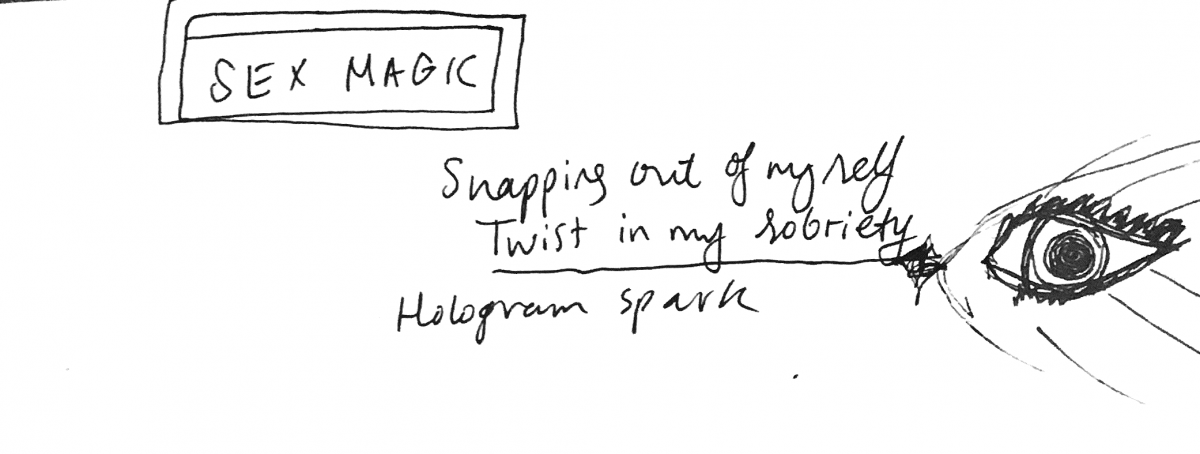 SEX MAGIC
Snapping out of myself
Twist in my sobriety
Hologram spark